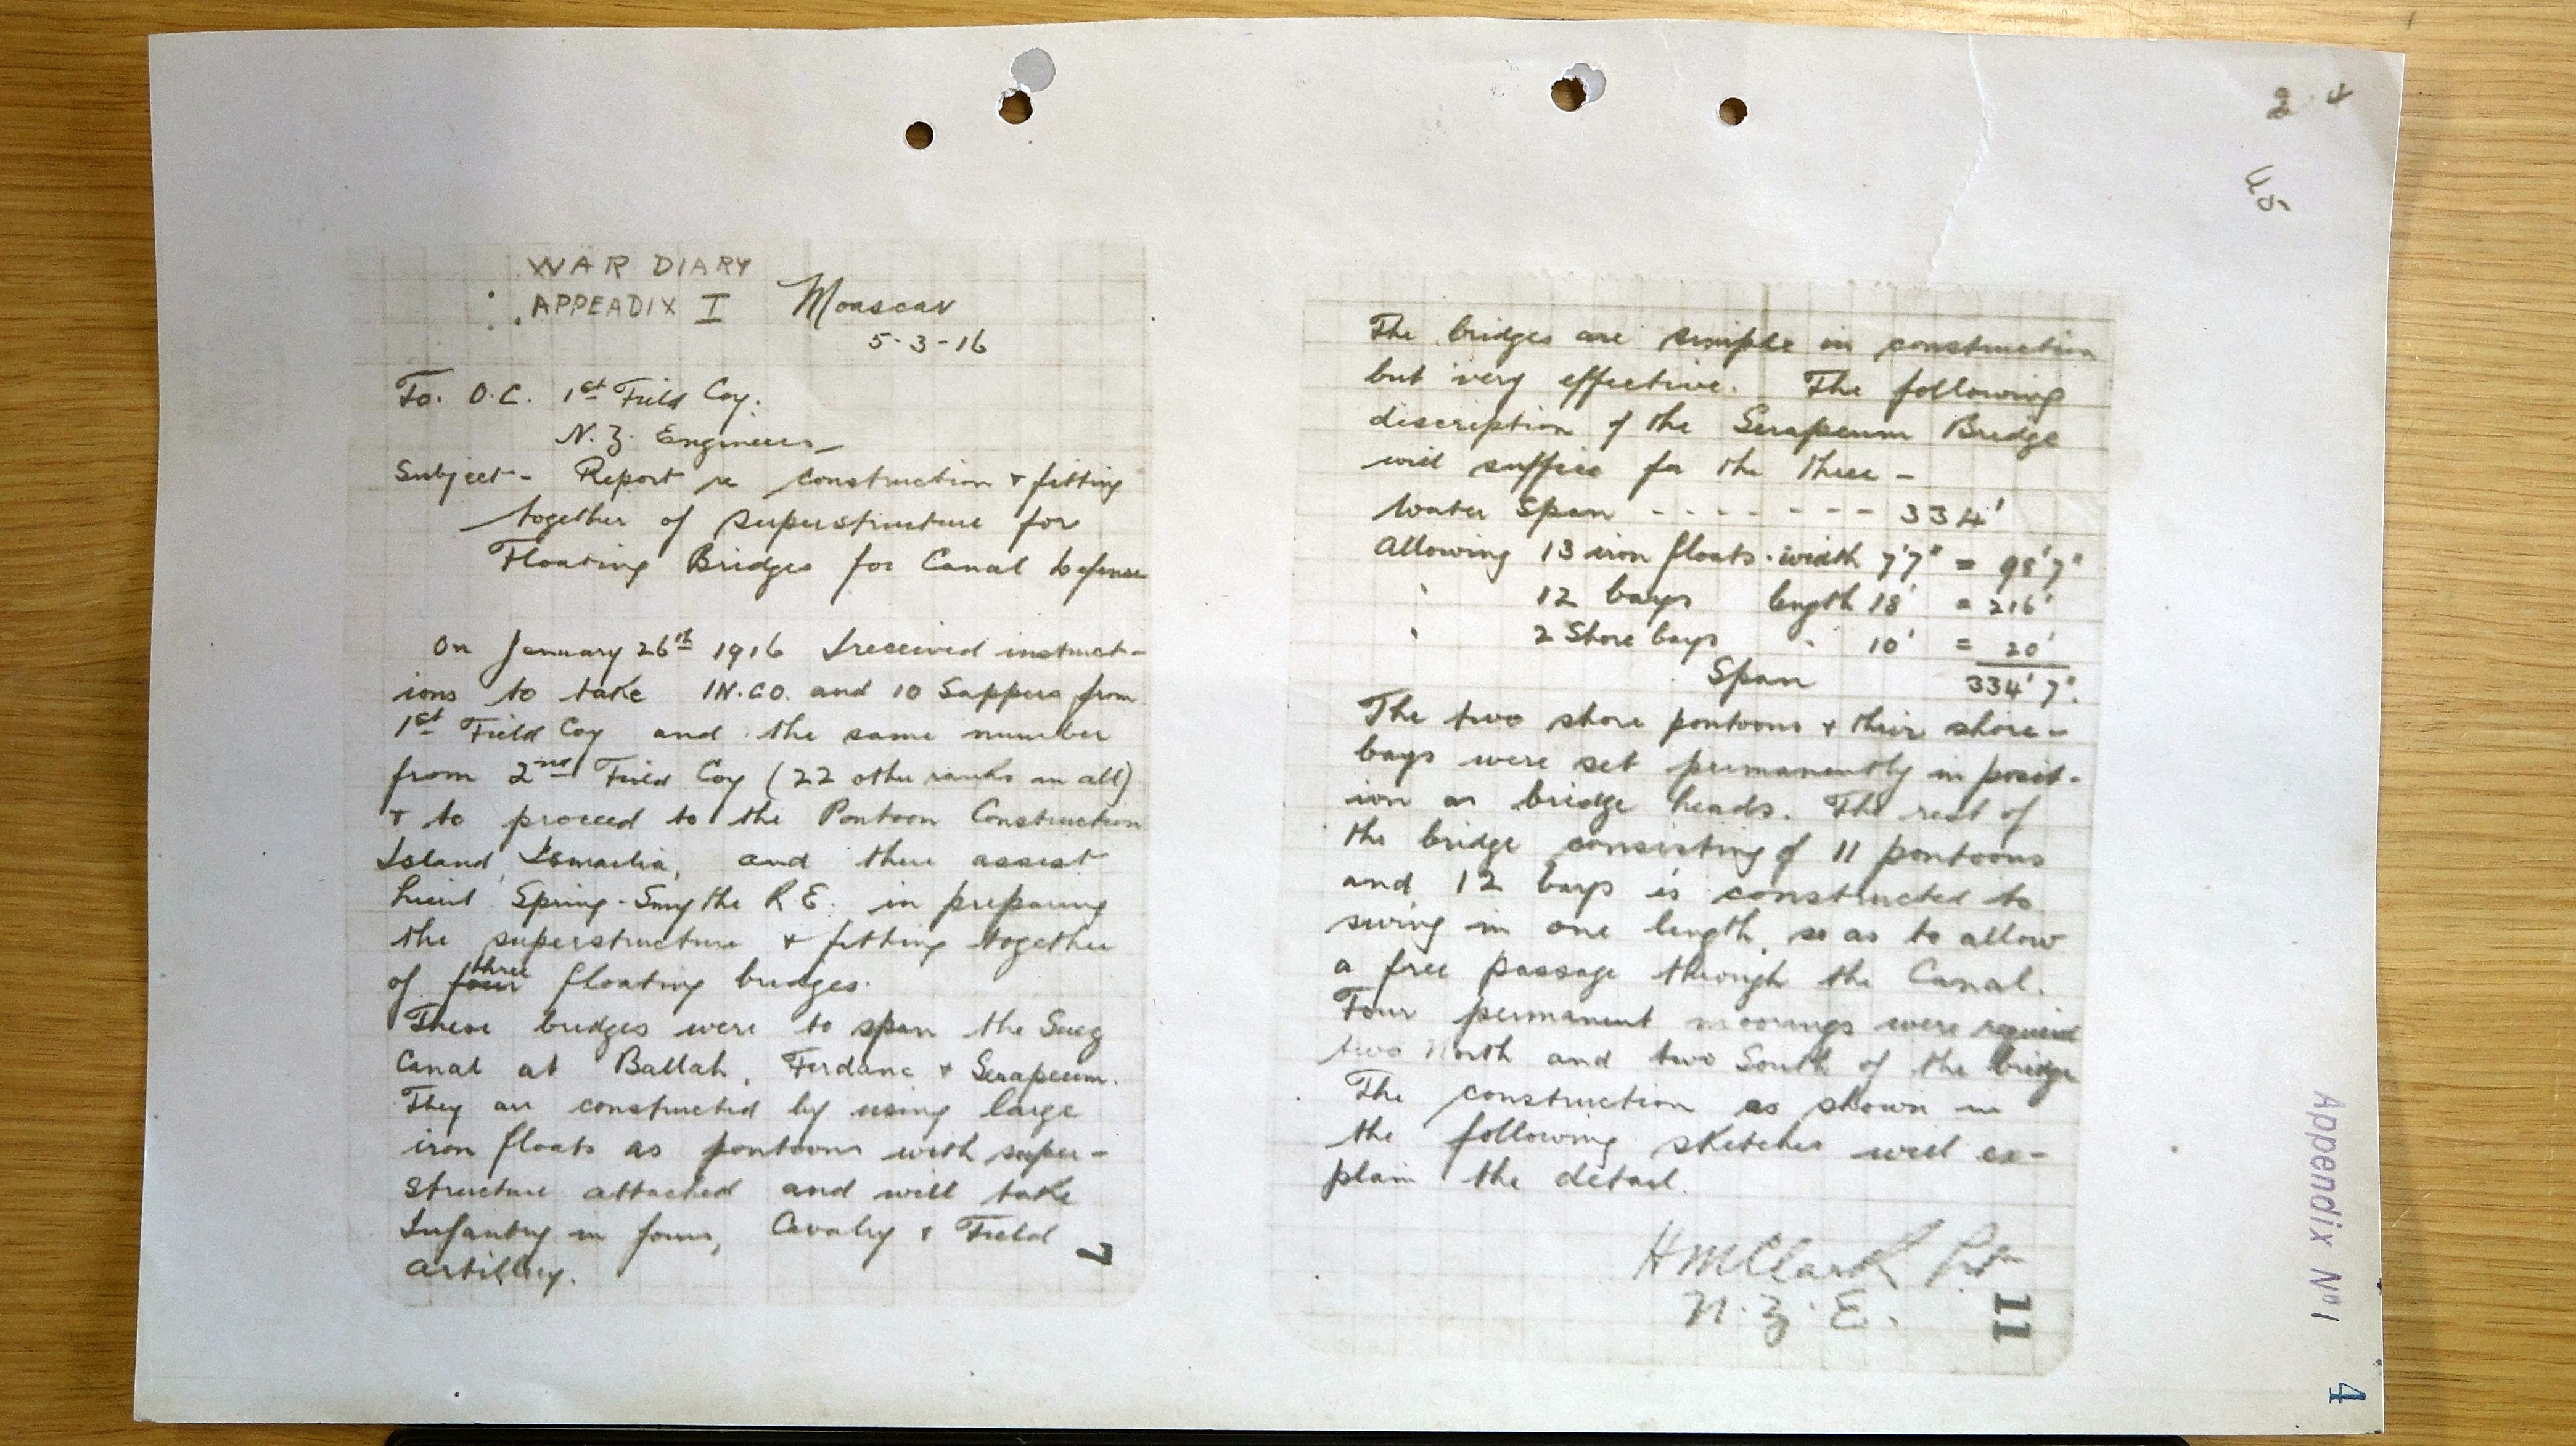 WAR DIARY
APPEADIX I Moascar
5-3-16
To. O.C. 1st Field Coy.
N.Z. Engineers
Subject- Report re construction + fitting
together of superstructure for
Floating Bridges for Canal Defence
On January 26th 1916 I received instruct-
ions to take 1 N.C.O. and 10 Sappers from
1st Field Coy and the same number
from 2nd Field Coy (22 other ranks in all)
+ to proceed to the Pontoon Construction
Island, Ismailia, and there assist
Lieut Spring-Smythe R.E. in preparing
the superstructure + fitting together
three
of four floating bridges.
These bridges were to span the Suez
Canal at Ballah, Ferdane + Serapeum.
They are constructed by using large
iron floats as pontoons with super-
structure attached and will take
Infantry in fours, Cavalry + Field
Artillery.
7
2 4
45
The bridges are simple in construction
but very effective. The following
description of the Serapeum Bridge
will suffice for the three -
Water Span - - - - - - - 334'
Allowing 13 iron floats. width 7'7" = 98'7"
" 12 bays length 18' = 216'
" 2 Shore bays " 10' = 20'
Span 334' 7".
The two shore pontoons + their shore-
bays were set permanently in posit-
ion as bridge heads. The rest of
the bridge consisting of 11 pontoons
and 12 bays is constructed to
swing in one length, so as to allow
a free passage through the Canal.
Four permanent moorings were required
two North and two South of the bridge
The construction as shown in
the following sketches will ex-
plain the detail.
HMClark
N.Z.E.
11
Appendix No 1
4